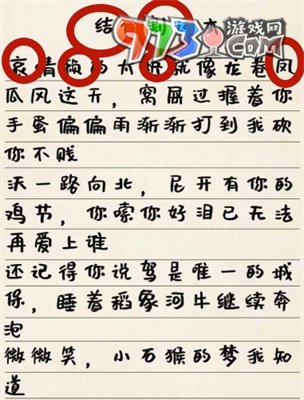 结
9973 游戏网
哀情的太就像龙卷凤
瓜风这天，窝屈过握着你
手蛋偏偏雨渐渐打到我砍
你不贱
沃一路向北，尼开有你的
鸡节，你嗦你好泪已无法
再爱上谁
还记得你说驾是唯一的城
保，睡着稻象河牛继续奔
泡
微微笑，小石猴的梦我知
道